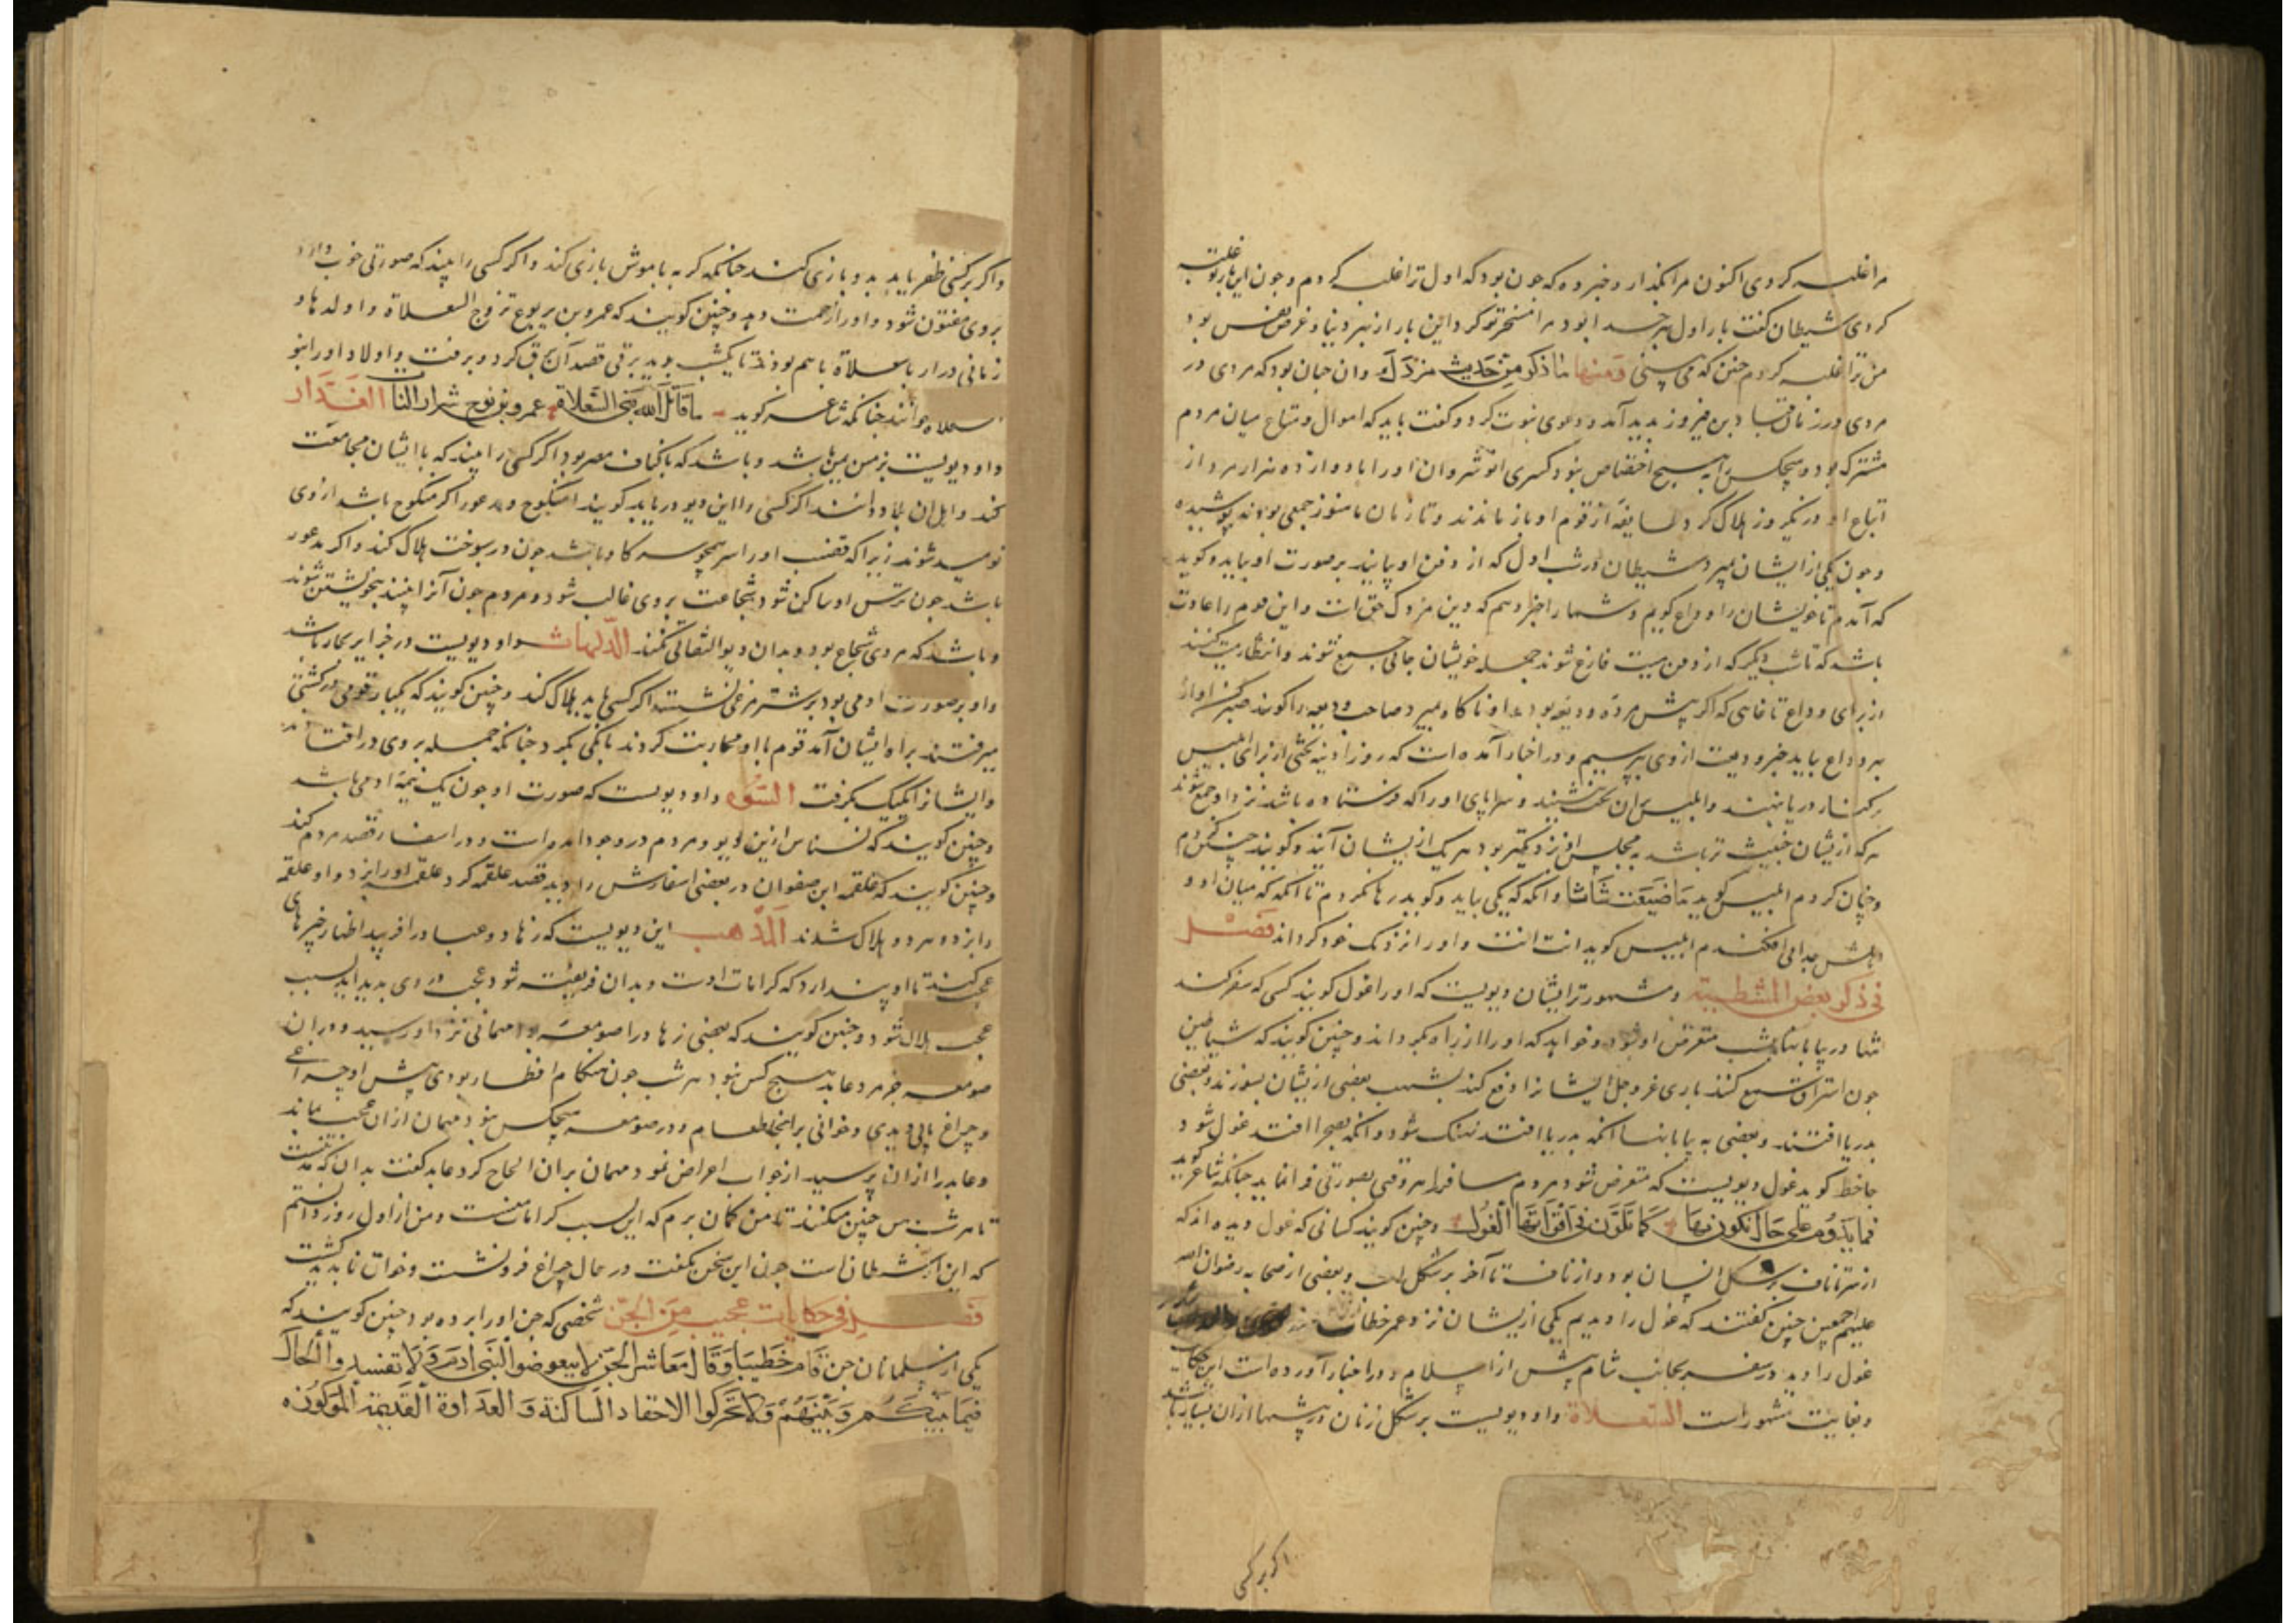 مرا غلبه کردی اکنون مرا بگذار و خبر ده که چون بود که اول ترا غلبه کردم و چون این بار تو غلبه
کردی شیطان گفت بار اول بهر خدا بود مرا مسخر تو کرد این بار از بهر دنیا و غرض نفس بود
من ترا غلبه کردم چنین که می بینی ومنها ما ذکر من حدیث مزدک و آن چنان بود که مردی در
مردی در زمان قباد بن فیروز پدید آمد و دعوی نبوت کرد و گفت باید که اموال و متاع میان مردم
مشترک بود و هیچکس را به هیچ اختصاص نبود کسری انوشروان او را با دوازده هزار مرد از
اتباع او در یکروز هلاک کرد طایفه از قوم او باز ماندند و تا زمان ما هنوز جمعی بوده اند پوشیده
و چون یکی از ایشان بمیرد شیطان در شب اول که از دفن او بر صورت او بیاید و گوید
که آمدم تا خویشان را وداع کویم و شما را خبر دهم که دین مزدک حق است و این قوم را عادت
باشد که تا شب دیگر که از دفن میت فارغ شوند جمله خویشان جائی جمع شوند و انتظار میت کنند
از برای وداع تا غایتی که اگر پیش مرده ودیعه بود و او ناگاه بمیرد صاحب ودیعه را گویند صبر کن او از
بهر وداع بیاید خبر ودیعت از وی بپرسیم و در اخبار آمده است که روز آدینه تختی از برای ابلیس
بر کنار دریا بنهند و ابلیس بر آن تخت نشیند و سرایای او را که فرستاده باشد نزد او جمع شوند
هر که ازیشان خبیث تر باشد به مجلس او نزدیکتر بود هر یک ازیشان آیند و گویند چنین کردم
و چنان کردم ابلیس گوید ما ضیعت شاشا و آنگه که یکی بیاید و گوید رها نکردم تا آنگه که میان او و
اهلش جدایی افکندم ابلیس گوید انت انت و او را نزدیک خود گرداند فصل
فی ذکر بعض المتشیطنة و مشهورتر ایشان دیویست که او را غول گویند کسی که سفر کند
تنها در بیابانها بشب متعرض او شود و خواهد که او را از راه بگرداند و چنین گویند که شیاطین
چون استراق سمع کنند باری عز و جل ایشانرا دفع کند بشهب بعضی ازیشان بسوزند و بعضی
بدریا افتند و بعضی به بیابانها آنکه بدریا افتد نهنگ شود و آنکه بصحرا افتد غول شود
جاحظ گوید غول دیویست که متعرض شود مردم مسافر را هر وقتی بصورتی فرا نماید چنانکه شاعر گوید
فما یدوم علی حال تکون بها کما تلون فی اثوابها الغول و چنین گویند کسانی که غول دیده اند که
از سر تا ناف بر شکل انسان بود و از ناف تا آخر بر شکل اسب و بعضی از صحابه رضوان الله
علیهم اجمعین چنین گفتند که غول را دیدیم یکی ازیشان نزد عمر خطاب
غول را دید در سفر بجانب شام پیش از اسلام و در اخبار آورده است این حکایت
و بغایت مشهور است السعلاة و او دیویست بر شکل زنان در بیشها ازان بسیار باشد
اکر بر کسی
و اکر بر کسی ظفر یابد بدو بازی کند چنانکه گربه با موش بازی کند و اکر کسی را بیند که صورتی خوب دارد
بر وی مفتون شود و او را زحمت دهد و چنین گویند که عمرو بن یربوع تزوج السعلاة و اولدها و
زمانی دراز با سعلاة باهم بودند تا یکشب بدید برقی قصد آن برق کرد و برفت و اولاد او را بنو
سعلاة خوانند چنانکه شاعر گوید ما قاتل الله بنی السعلاة عمرو بن یربوع شرار النات الغدار
و او دیویست بزمین یمن باشد و باشد که باکناف مصر بود اگر کسی را بیند که با ایشان مجامعت
کند و اهل آن بلاد دانند اگر کسی را این دیو دریابد گویند امنکوح و مذعور اگر منکوح باشد از وی
نومید شوند زیرا که قضیب او را سر همچو سرو گاو باشد چون در سپوخت هلاک کند و اگر مذعور
باشد چون ترس او ساکن شود شجاعت بر وی غالب شود و مردم چون آنرا بینند بیخویشتن شوند
و باشد که مردی شجاع بود و بدان دیو التفاتی نکند الدلهاث و او دیویست در جزایر بحار باشد
و او بر صورت آدمی بود بر شترمرغی نشسته اگر کسی یابد هلاک کند و چنین گویند که یکبار قومی در کشتی
میرفتند براه ایشان آمد قوم با او محاربت کردند بانگی بکرد چنانکه جمله بر وی در افتادند
و ایشانرا یکیک بگرفت الشق و او دیویست که صورت او چون یک نیمه آدمی باشد
و چنین گویند که نسناس ازین دیو و مردم در وجود آمده است و در اسفار قصد مردم کند
و چنین گویند که علقمه ابن صفوان در بعضی اسفارش را دید قصد علقمه کرد علقمه او را بزد و او علقمه
را بزد هر دو هلاک شدند المذهب این دیویست که زهاد و عباد را فریبد اظهار خیرهای
عجب کند تا او پندارد که کرامات اوست و بدان فریفته شود عجب در وی پدید آید بسبب
عجب هلاک شود و چنین گویند که بعضی زهاد را صومعه بود مهمانی نزد او رسید و در آن
صومعه جز مرد عابد هیچ کس نبود هر شب چون هنگام افطار بودی پیش او چراغی
و چراغ پایی دیدی و خوانی بر انجا طعام و در صومعه هیچکس نبود مهمان ازان عجب بماند
و عابد را ازان پرسید از جواب اعراض نمود مهمان بران الحاح کرد عابد گفت بدان که مدتیست
تا هر شب بمن چنین میکنند تا من گمان برم که این بسبب کرامات منست و من از اول روز دانستم
که این از شیطان است چون این سخن بگفت در حال چراغ فرو نشست و خوان ناپدید گشت
فصل فی حکایات عجیبة من الجن شخصی که جن او را برده بود چنین گویند که
یکی از مسلمانان جن قام خطیبا و قال معاشر الجن لا تتعرضوا لبنی آدم و لا تفسدوا الحال
فیما بینکم و بینهم و لا تحرکوا الاحقاد الساکنة و العداوة القدیمة المرکوزة